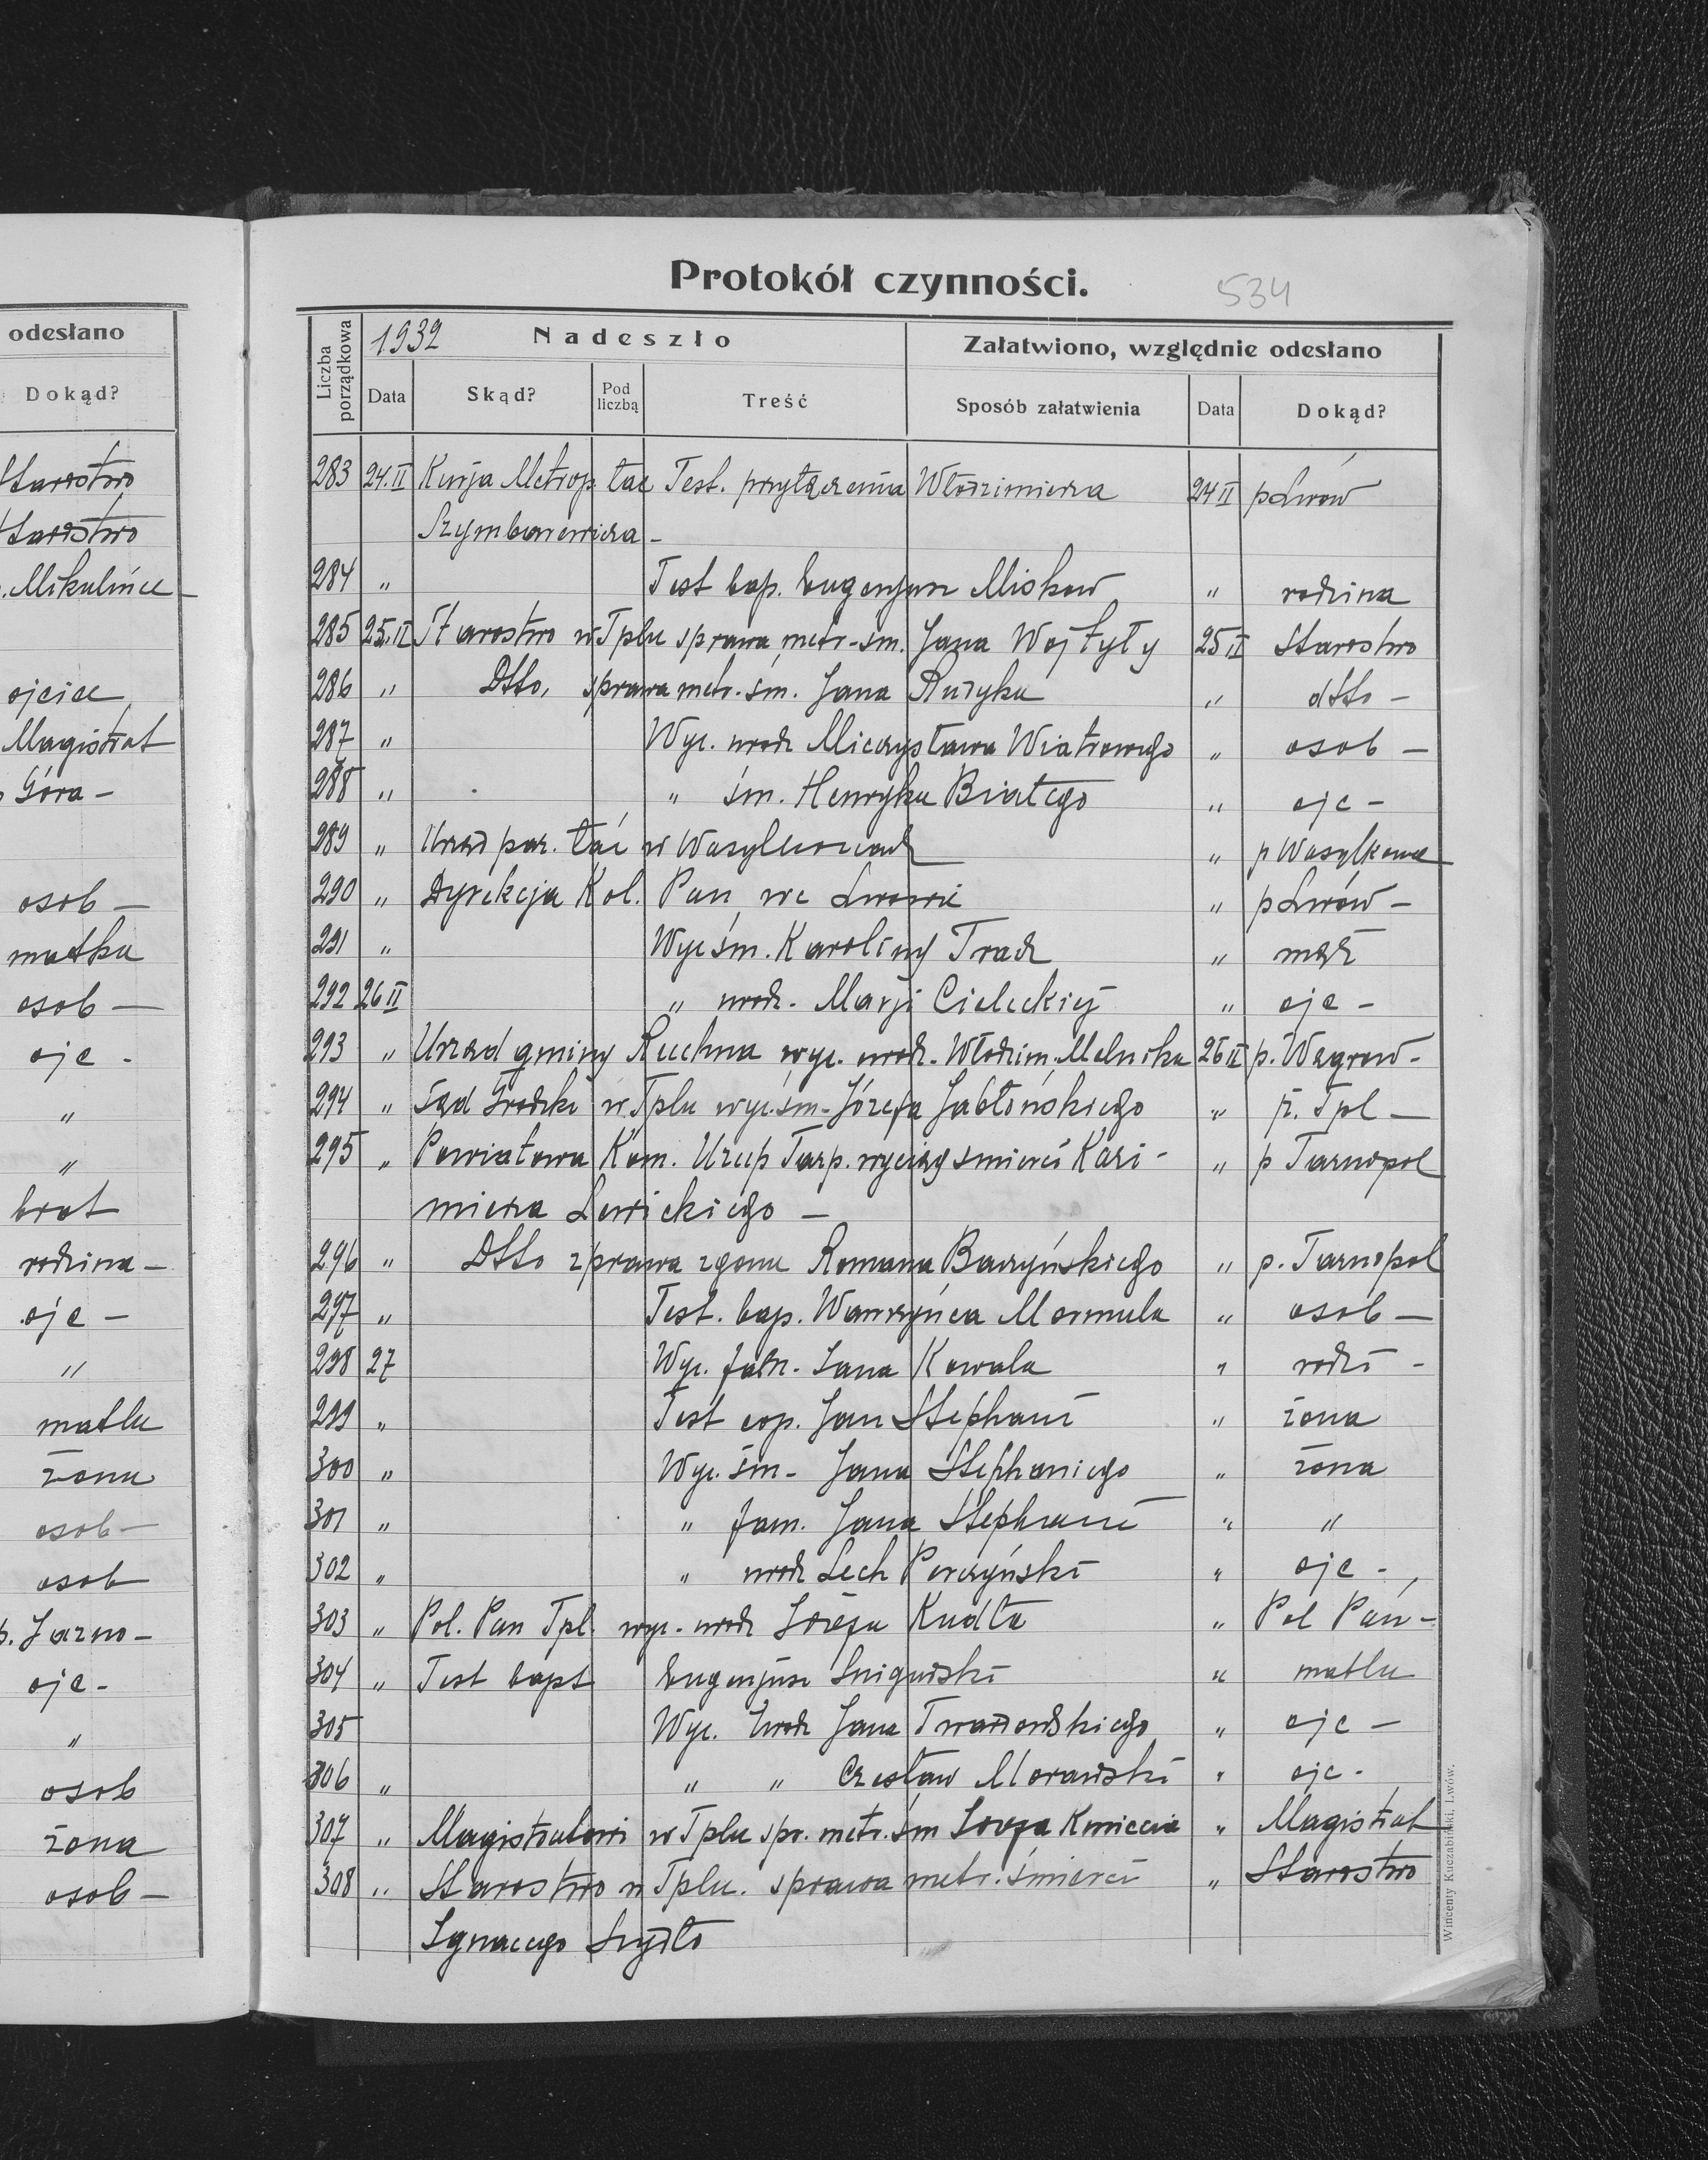 odesłano
Dokąd?
Starostwo
Starostwo
p. Mikulińce -
ojciec
Magistrat
p Góra -
osob -
matka
osob -
ojc -
"
"
brat
rodzina -
ojc -
"
matka
żona
osob -
osob
p. Jarno -
ojc -
"
osob
żona
osob -
Protokół czynności. 534
Liczba porządkowa 1932 Nadeszło Załatwiono, względnie odesłano
Data Skąd? Pod liczbą Treść Sposób załatwienia Data Dokąd?
283 24.II Kurja Metrop łac Test. przyłączenia Włodzimierza 24 II p Lwow
Szymbarewicza -
284 " Test bap. Eugenjusz Miskow " rodzina
285 25.II Starostwo w Tplu sprawa metr-śm. Jana Wojtyły 25 II Starostwo
286 " Dtto, sprawa metr. śm. Jana Ruzyka " dtto -
287 " Wyc. urodz Mieczysława Wiatrowego " osob -
288 " " śm. Henryka Białego " ojc -
289 " Urzad par. łać w Wasylkowcach " p Wasylkowce
290 " Dyrekcja Kol. Pan, we Lwowie " p Lwów -
291 " Wyc śm. Karoliny Tracz " mąż
292 26 II " urodz. Marji Cieleckiej " ojc -
293 " Urząd gminy Ruchna wyc. urodz. Włodzim. Melnika 26 II p. Węgrow -
294 " Sąd Grodzki w Tplu wyc. śm - Józefa Jabłońskiego " p. Tpl -
295 " Powiatowa Kom. Uzup Tarp. wyciąg smierci Kazi - " p Tarnopol
mierza Lewickiego -
296 " Dtto sprawa zgonu Romana Baczyńskiego " p. Tarnopol
297 " Test. bap. Wawrzyńca Mormula " osob -
298 27 Wyc. fam. Jana Kowala " rodz -
299 " Test cop. Jan Stephani " żona
300 " Wyc. śm - Jana Stephaniego " żona
301 " " fam. Jana Stephani " "
302 " " urodz Lech Porczyński " ojc -
303 " Pol. Pan Tpl. wyc. urodz Józefa Kudła " Pol Pań -
304 " Test bapt Eugenjusz " matka
305 Wyc. urodz Jana Twardowskiego " ojc -
306 " " " Czesław Morawski " ojc -
307 " Magistratowi w Tplu spr. metr. śm Józefa Kmiecia " Magistrat
308 " Starostwo w Tplu. sprawa metr. śmierci " Starostwo
Ignacego Szydło
Wincenty Kuczabiński, Lwów.